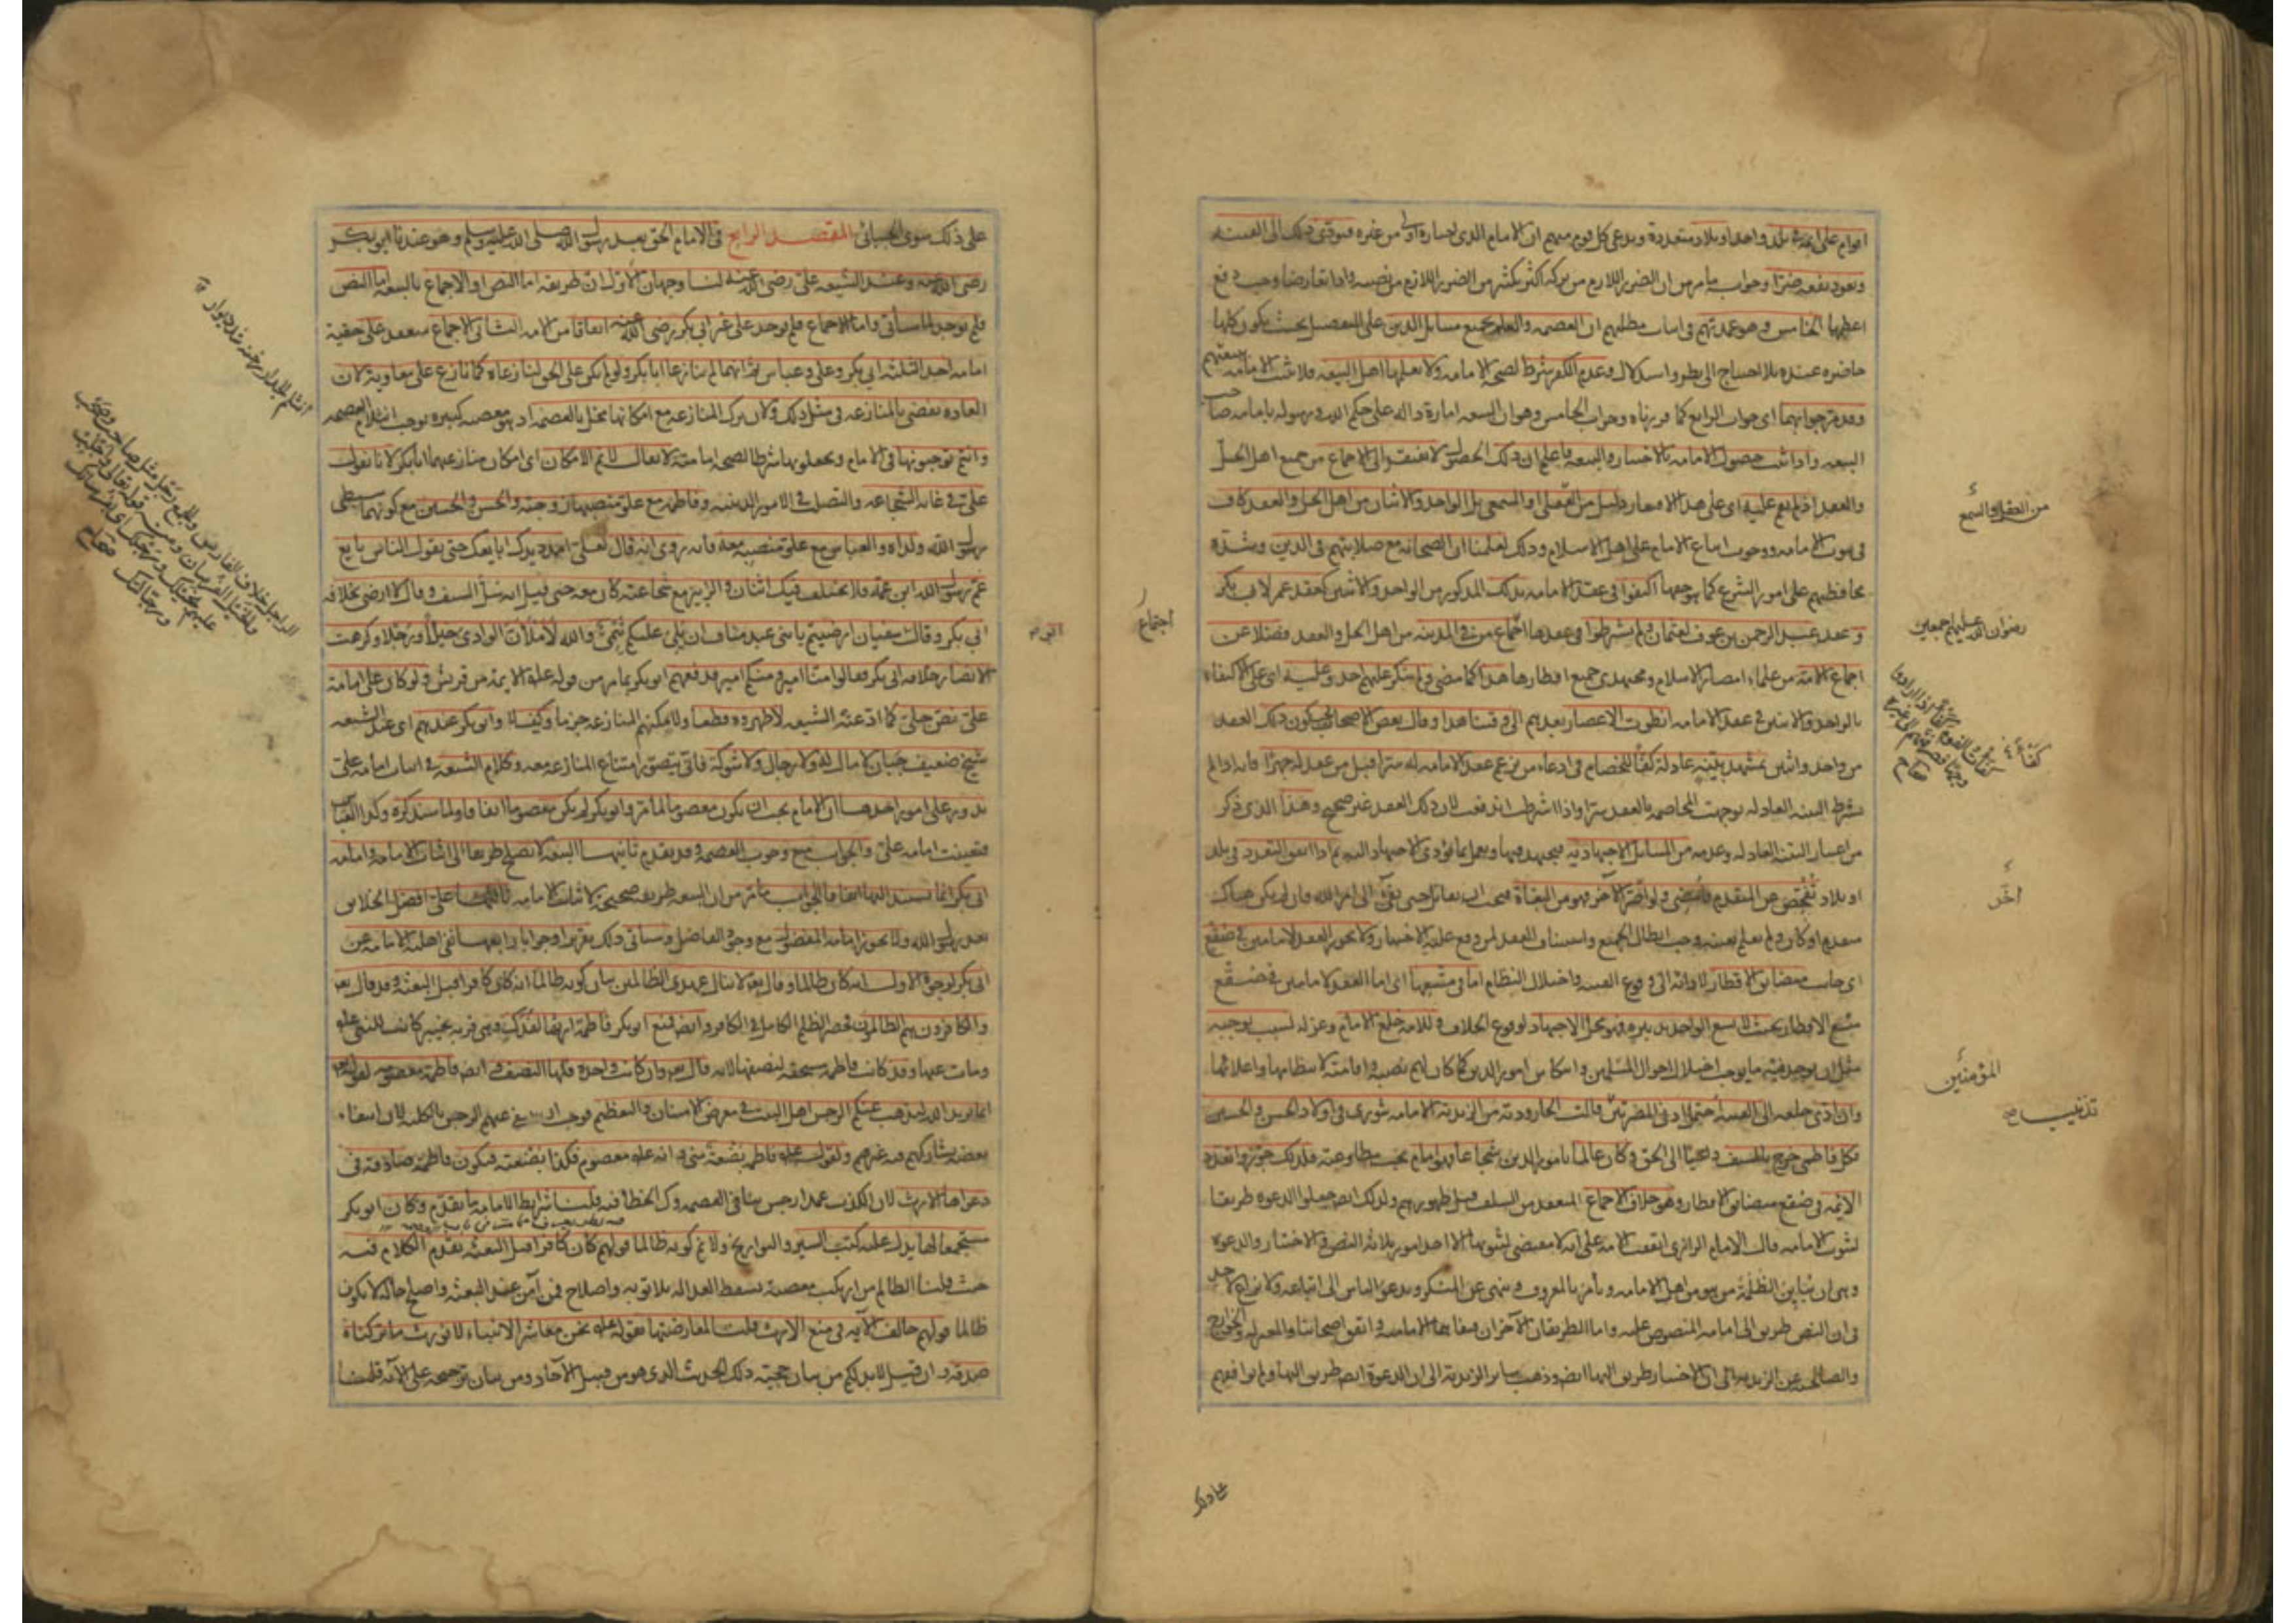 اقوام على ائمة في بلد واحد او بلاد متعددة ويدعى كل قوم منهم ان الامام الذى اختاره اولى من غيره فيؤدى ذلك الى الفتنة
ويعود نفعه ضرا وجوابه ما مر من ان الضرر اللازم من تركه اكثر بكثير من الضرر اللازم من نصبه واذا تعارضا وجب دفع
اعظمهما الخامس وهو عمدتهم فى اثبات مطلبهم ان العصمة والعلم بجميع مسائل الدين على التفصيل بحيث يكون كلها
حاضرة عنده بلا احتياج الى نظر واستدلال وعدم الكفر شرط لصحة الامامة ولا يعلمها اهل البيعة فلا تثبت الامامة ببيعتهم
وقد مر جوابهما اى جواب الرابع كما قررناه وجواب الخامس وهو ان البيعة امارة دالة على حكم الله ورسوله بامامة صاحب
البيعة واذا ثبت حصول الامامة بالاختيار والبيعة فاعلم ان ذلك الحصول لا يفتقر الى الاجماع من جميع اهل الحل
والعقد اذ لم يقم عليه اى على هذا الافتقار دليل من العقل او السمع بل الواحد والاثنان من اهل الحل والعقد كاف
فى ثبوت الامامة ووجوب اتباع الامام على اهل الاسلام وذلك لعلمنا ان الصحابة مع صلابتهم فى الدين وشدة
محافظتهم على امور الشرع كما هو حقها اكتفوا فى عقد الامامة بذلك المذكور من الواحد والاثنين كعقد عمر لابى بكر
وعقد عبد الرحمن بن عوف لعثمان ولم يشترطوا فى عقدها اجتماع من فى المدينة من اهل الحل والعقد فضلا عن
اجماع الامة من علماء امصار الاسلام ومجتهدى جميع اقطارها هذا كما مضى ولم ينكر عليهم احد وعليه اى على الاكتفاء
بالواحد والاثنين فى عقد الامامة انطوت الاعصار بعدهم الى وقتنا هذا وقال بعض الاصحاب يجب كون ذلك العقد
من واحد واثنين بمشهد بينة عادلة كفا للخصام فى ادعاء من يزعم عقد الامامة له سرا قبل من عقد له جهرا فانه اذا لم
يشترط البينة العادلة توجهت المخاصمة بالعقد سرا واذا اشترطت اندفعت لان ذلك العقد غير صحيح وهذا الذى ذكر
من اعتبار البينة العادلة وعدمه من المسائل الاجتهادية فيجتهد فيها ويعمل بما يؤدى الاجتهاد اليه ثم اذا اتفق التعدد فى بلد
او بلاد تفحص عن المتقدم فامضى ولو اصر الآخر فهو من البغاة فيجب ان يقاتل حتى يفئ الى امر الله فان لم يكن هناك
متقدم او كان ولم يعلم بعينه وجب ابطال الجميع واستيناف العقد لمن وقع عليه الاختيار ولا يجوز العقد لامامين فى صقع
اى جانب متضايق الاقطار لادائه الى وقوع الفتنة واختلال النظام اما فى متسعها اى اما العقد لامامين فى صقع
متسع الاقطار بحيث لا يسع الواحد تدبيره فهو محل الاجتهاد لوقوع الخلاف وللامة خلع الامام وعزله بسبب يوجبه
مثل ان يوجد منه ما يوجب اختلال احوال المسلمين وانتكاس امور الدين كما كان لهم نصبه واقامته لانتظامها واعلائها
وان ادى خلعه الى الفتنة احتمل ادنى المضرتين قالت الجارودية من الزيدية الامامة شورى فى اولاد الحسن والحسين
فكل فاطمى خرج بالسيف داعيا الى الحق وكان عالما بامور الدين شجاعا فهو امام يجب مطاوعته فلذلك جوزوا تعدد
الائمة فى صقع متضايق الاقطار وهو خلاف الاجماع المنعقد من السلف قبل ظهورهم ولذلك ايضا جعلوا الدعوة طريقا
لثبوت الامامة قال الامام الرازى اتفقت الامة على انه لا مقتضى لثبوتها الا احد امور ثلاثة النص والاختيار والدعوة
وهى ان يباين الظلمة من هو من اهل الامامة ويأمر بالمعروف وينهى عن المنكر ويدعو الناس الى اتباعه ولا نزاع لاحد
فى ان النص طريق الى امامة المنصوص عليه واما الطريقان الآخران فنفاهما الامامية واتفق اصحابنا والمعتزلة والخوارج
والصالحية من الزيدية على ان الاختيار طريق اليها ايضا وذهب سائر الزيدية الى ان الدعوة ايضا طريق اليها ولم يوافقهم
من العقل والسمع
رضوان الله عليهم اجمعين
المؤمنين
تذنيب
اجتماع
على ذلك
على ذلك سوى الجبائى المقصد الرابع فى الامام الحق بعد رسول الله صلى الله عليه وسلم وهو عندنا ابو بكر
رضى الله عنه وعند الشيعة على رضى الله عنه لنا وجهان الاول ان طريقه اما النص او الاجماع بالبيعة اما النص
فلم يوجد لما سيأتى واما الاجماع فلم يوجد على غير ابى بكر رضى الله عنه اتفاقا من الامة الثانى الاجماع منعقد على حقية
امامة احد الثلثة ابى بكر وعلى وعباس ثم انهما لم ينازعا ابا بكر ولو لم يكن على الحق لنازعاه كما نازع على معاوية لان
العادة تقضى بالمنازعة فى مثل ذلك ولان ترك المنازعة مع امكانها مخل بالعصمة اذ هو معصية كبيرة توجب انثلام العصمة
وانتم توجبونها فى الامام وتجعلونها شرطا لصحة امامته لا يقال لا نم الامكان اى امكان منازعتهما ابا بكر لانا نقول
على فى غاية الشجاعة والتصلب فى الامور الدينية وفاطمة مع علو منصبها زوجته والحسن والحسين مع كونهما سبطى
رسول الله ولداه والعباس مع علو منصبه معه فانه روى انه قال لعلى امدد يدك ابايعك حتى يقول الناس بايع
عم رسول الله ابن عمه فلا يختلف فيك اثنان والزبير مع شجاعته كان معه حتى قيل انه سل السيف وقال لا ارضى بخلافة
ابى بكر وقال سفيان ارضيتم يا بنى عبد مناف ان يلى عليكم تيمى والله لاملأن الوادى خيلا ورجلا وكرهت
الانصار خلافة ابى بكر فقالوا منا امير ومنكم امير فدفعهم ابو بكر بما مر من قوله عليه الائمة من قريش ولو كان على امامة
على نص جلى كما ادعته الشيعة لاظهروه قطعا ولامكنهم المنازعة جزما وكيف لا وابو بكر عندهم اى عند الشيعة
شيخ ضعيف جبان لا مال له ولا رجال ولا شوكة فانى يتصور امتناع المنازعة معه وكلام الشيعة فى اثبات امامة على
يدور على امور احدها ان الامام يجب ان يكون معصوما لما مر وابو بكر لم يكن معصوما اتفاقا ولما سنذكره وكذا العباس
فتعينت امامة على والجواب منع وجوب العصمة وقد تقدم ثانيها البيعة لا تصلح طريقا الى اثبات الامامة وامامة
ابى بكر انما تستند اليها اتفاقا فالجواب ما مر من ان البيعة طريقة صحيحة لاثبات الامامة ثالثها على افضل الخلائق
بعد رسول الله ولا يجوز امامة المفضول مع وجود الفاضل وسيأتى ذلك تقريرا وجوابا رابعها نفى اهلية الامامة عن
ابى بكر لوجوه الاول انه كان ظالما وقال تعالى لا ينال عهدى الظالمين بيان كونه ظالما انه كان كافرا قبل البعثة وقد قال تعالى
والكافرون هم الظالمون فحصر الظلم الكامل فى الكافر وايضا منع ابو بكر فاطمة ارثها لفدك وهى قرية بخيبر كانت للنبى عليه
ومات عنها وقد كانت فاطمة مستحقة لنصفها لانه قال تعالى وان كانت واحدة فلها النصف وايضا فاطمة معصومة لقوله تعالى
انما يريد الله ليذهب عنكم الرجس اهل البيت فى معرض الامتنان والتعظيم فوجب ان ينتفى عنهم الرجس بالكلية لان انتفاء
بعضه يشاركهم فيه غيرهم ولقوله عليه فاطمة بضعة منى وانه عليه معصوم فكذا بضعته فيكون فاطمة صادقة فى
دعواها الارث لان الكذب عمدا رجس ينافى العصمة وكذا الخطأ فيه قلنا شرائط الامامة ما تقدم وكان ابو بكر
مستجمعا لها يدل عليه كتب السير والتواريخ ولا نم كونه ظالما قولهم كان كافرا قبل البعثة تقدم الكلام فيه
حيث قلنا الظالم من ارتكب معصية تسقط العدالة بلا توبة واصلاح فمن آمن عند البعثة واصلح حاله لا يكون
ظالما قولهم خالف الآية فى منع الارث قلنا لمعارضتها بقوله عليه نحن معاشر الانبياء لا نورث ما تركناه
صدقة وان قيل لا بد لكم من بيان حجية ذلك الحديث الذى هو من قبيل الآحاد ومن بيان ترجيحه على الآية قلنا